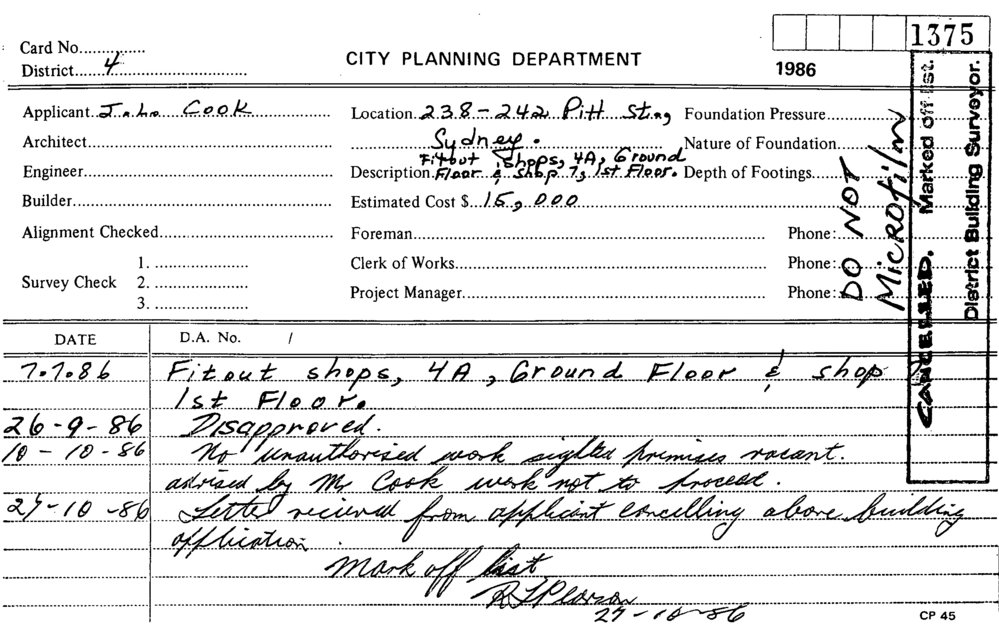 1375
Card No...............
District....4..................................
CITY PLANNING DEPARTMENT
1986
Applicant J. L. Cook
Location 238-242 Pitt St.,
Foundation Pressure
Architect
Sydney.
Nature of Foundation
Engineer
Description Fitout shops, 4A, Ground
Floor & shop 7, 1st Floor.
Depth of Footings
Builder
Estimated Cost $ 15,000
Alignment Checked
Foreman
Phone:
Survey Check 1.
2.
3.
Clerk of Works
Phone:
Project Manager
Phone:
DO NOT
Microfilm
CANCELLED. Marked off list.
District Building Surveyor.
DATE
D.A. No. /
7.7.86 Fitout shops, 4A, Ground Floor & shop
1st Floor.
26-9-86 Disapproved.
10-10-86 No unauthorised work sighted premises vacant.
advised by Mr Cook work not to proceed.
27-10-86 Letter recieved from applicant cancelling above building
application.
Mark off list
27-10-86
CP 45